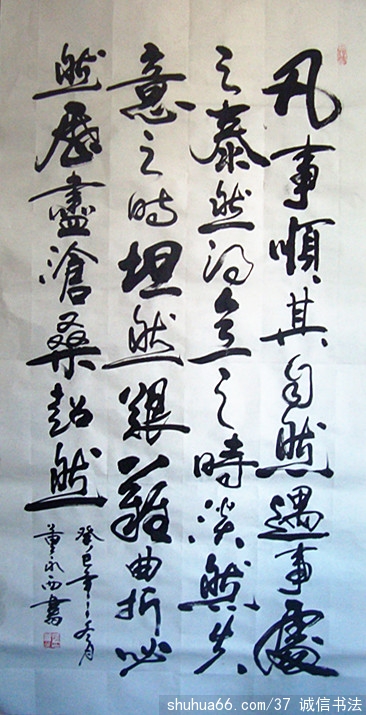 凡事順其自然遇事處
之泰然得意之時淡然失
意之時坦然艱難曲折必
然歷盡滄桑超然
癸巳年冬月
董永西書
shuhua66.com/37 诚信书法